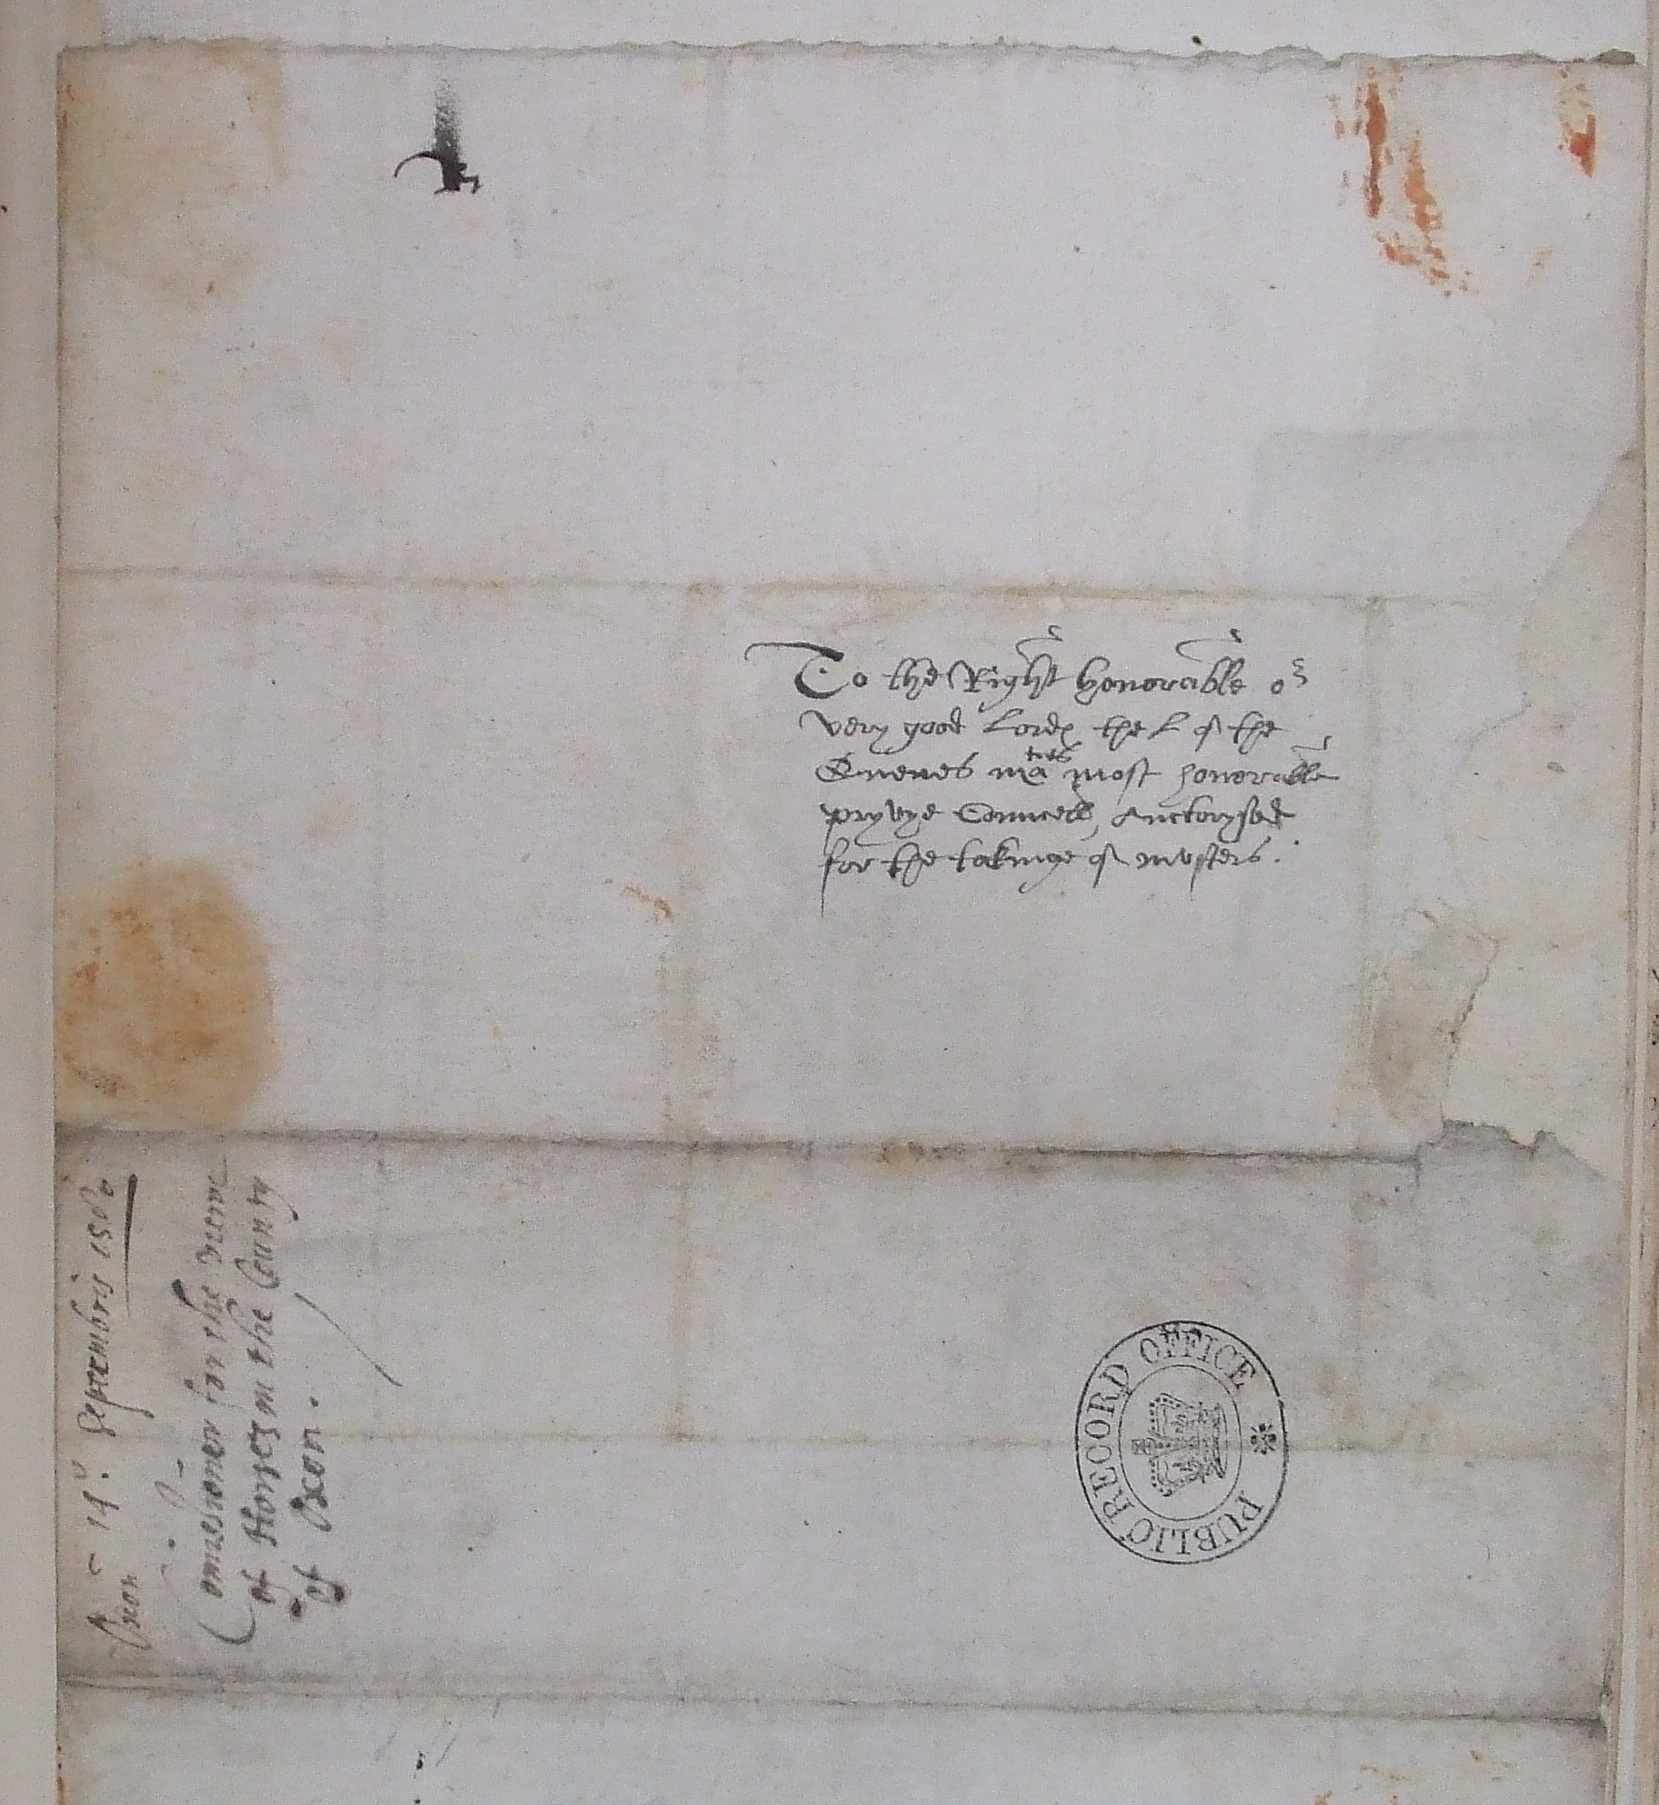 To the Right honorable or
very good Lordes the L of the
Quenes maties most honorable
pryvye Councell, Auctorysed
for the takinge of musters.
Oxon - 14o. Septembris 1580
Comissioner for the viewe
of Horses in the County
of Oxon.
PUBLIC RECORD OFFICE